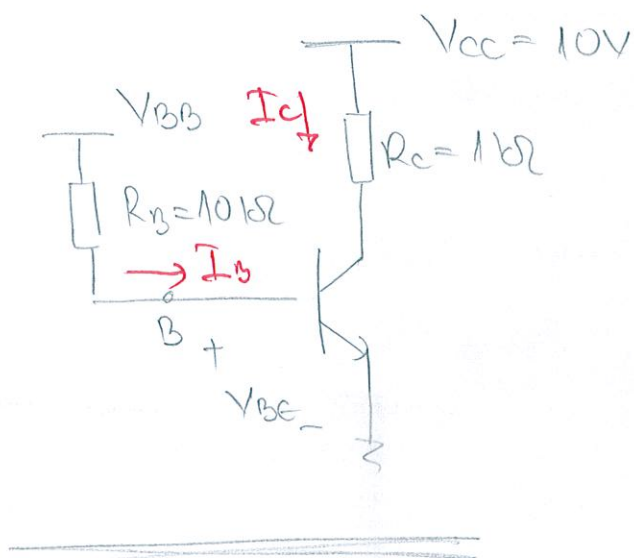 VCC = 10V
VBB
IC
RC = 1kΩ
RB = 10kΩ
IB
B
+
VBE -